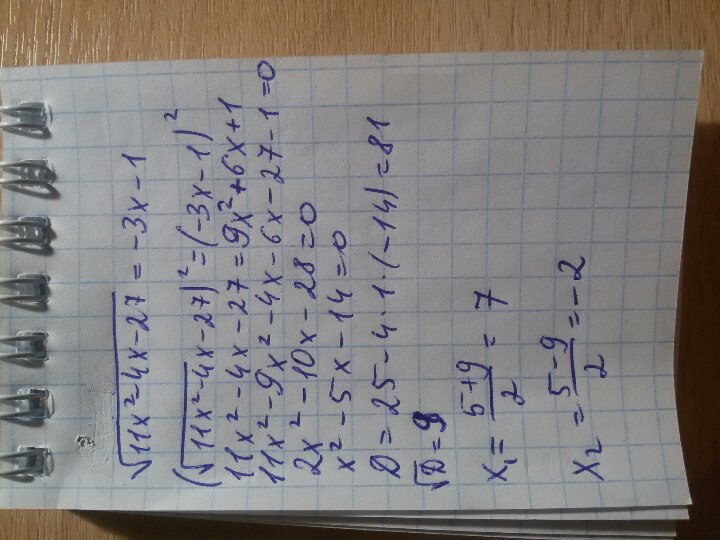 √11x²-4x-27 = -3x-1
(√11x²-4x-27)² = (-3x-1)²
11x²-4x-27=9x²+6x+1
11x²-9x²-4x-6x-27-1=0
2x²-10x-28=0
x²-5x-14=0
D=25-4·1·(-14)=81
√D=9
x₁= (5+9)/2 = 7
x₂ = (5-9)/2 =-2